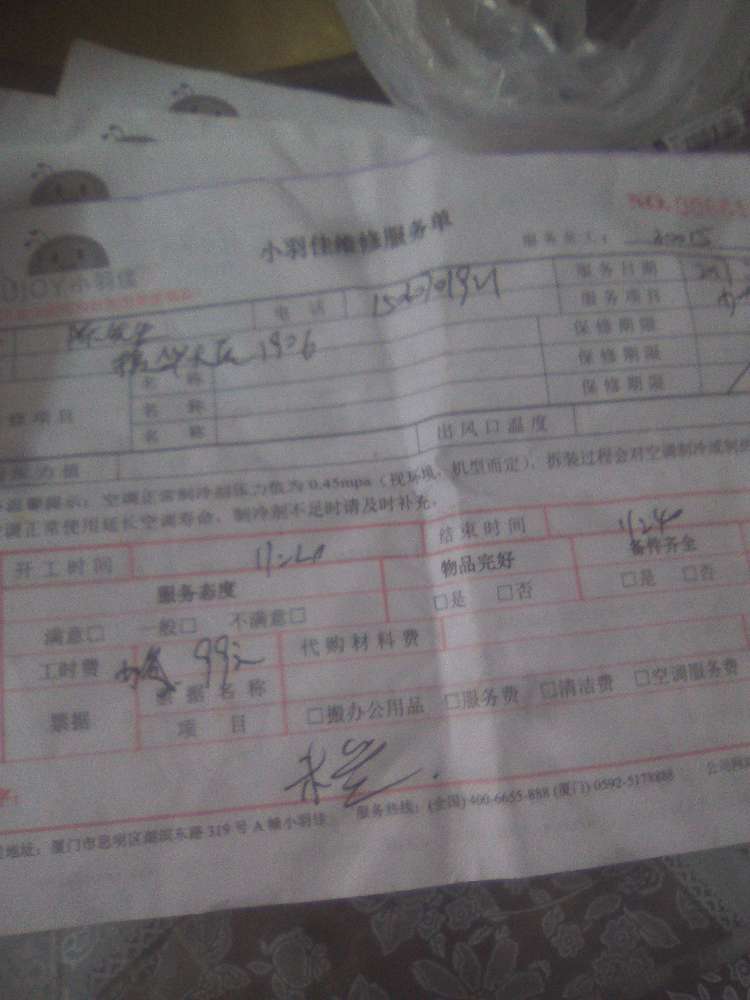 小羽佳维修服务单
NO.
服务员工:
电话 服务日期
1906 服务项目
名称 保修期限
修项目 名称 保修期限
名称 保修期限
压力值 出风口温度
温馨提示:空调正常制冷剂压力值为0.45mpa(视环境、机型而定),拆装过程会对空调制冷或制
调正常使用延长空调寿命,制冷剂不足时请及时补充。
开工时间 结束时间 11:24
服务态度 物品完好 备件齐全
满意□ 一般□ 不满意□ □是 □否 □是 □否
工时费 99元 代购材料费
票据 票据名称 □搬办公用品 □服务费 □清洁费 □空调服务费
项目
地址:厦门市思明区湖滨东路319号A幢小羽佳 服务热线:(全国)400-6655-888 (厦门)0592-5178888 公司网